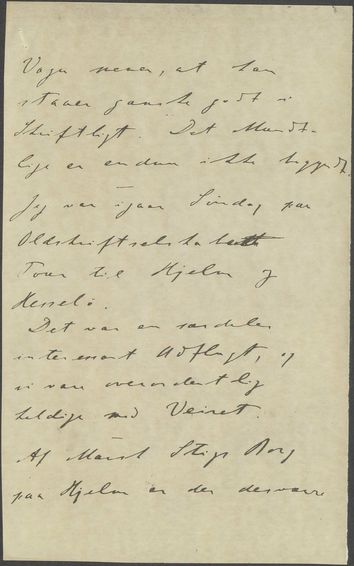 Vagn mener, at han
staaer ganske godt i
Skriftligt. Det Mundt-
lige er endnu ikke begyndt.
Jeg var igaar Søndag paa
Oldskriftselskabets
Tour til Hjelm og
Hesselø.
Det var en særdeles
interessant Udflugt, og
vi vare overordentlig
heldige med Veiret.
Af Marsk Stigs Borg
paa Hjelm er der desværre